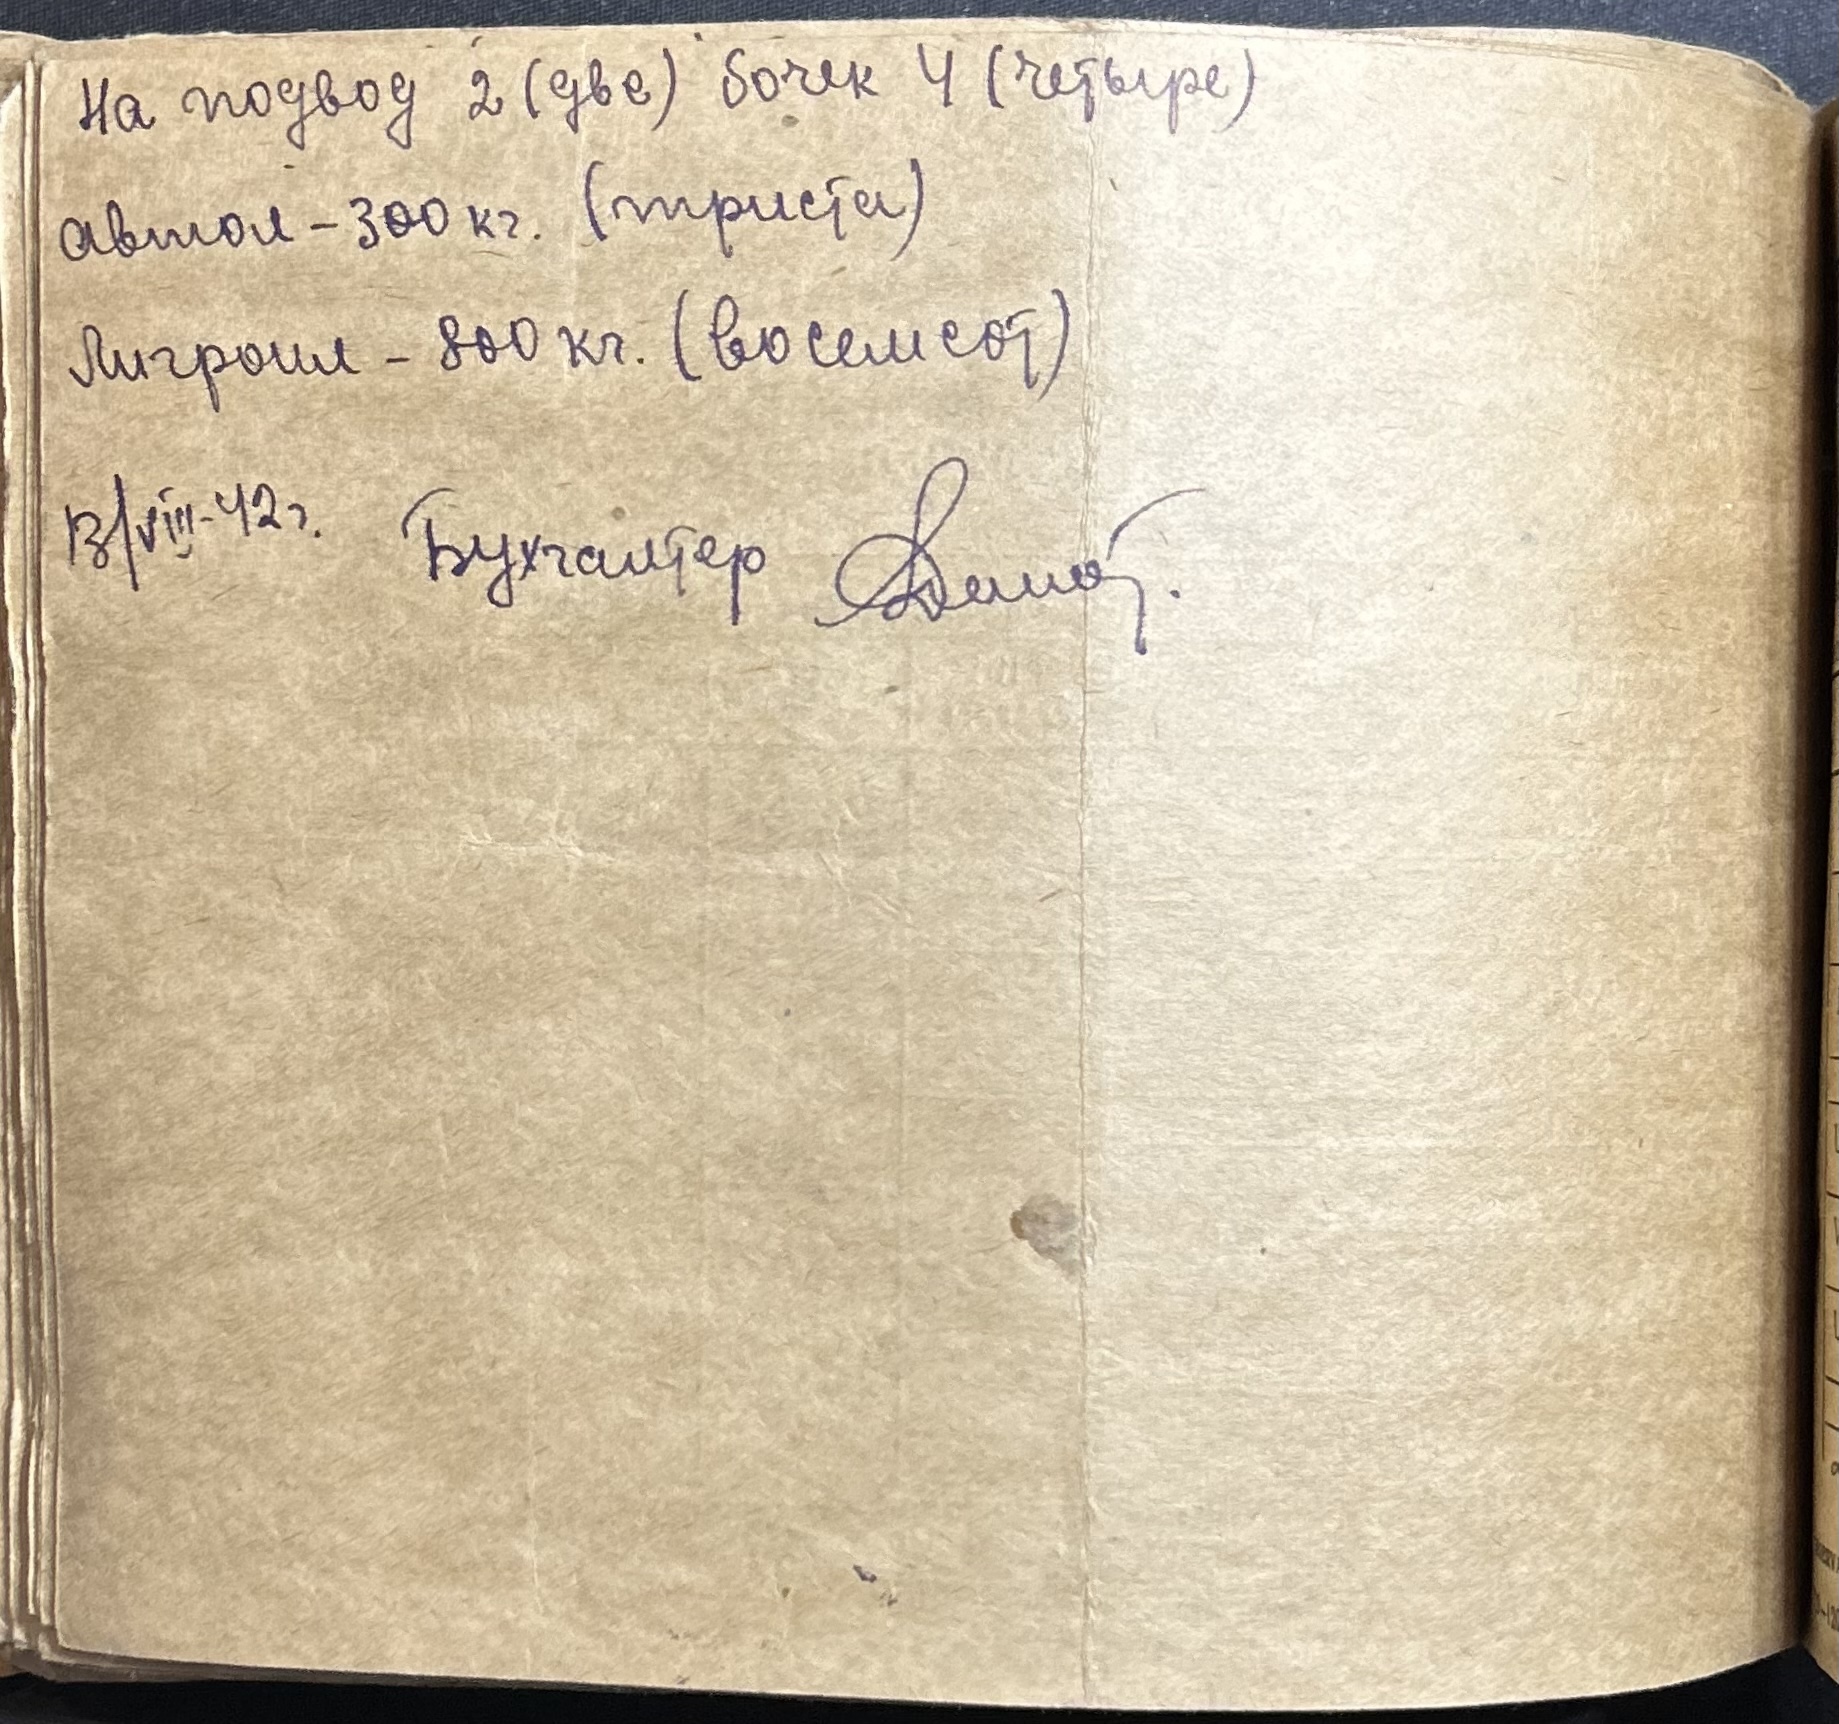 На подвод 2 (две) бочек 4 (четыре)
автол – 300 кг. (триста)
Лигроил – 800 кг. (восемсот)
13/VIII-42 г. Бухгалтер